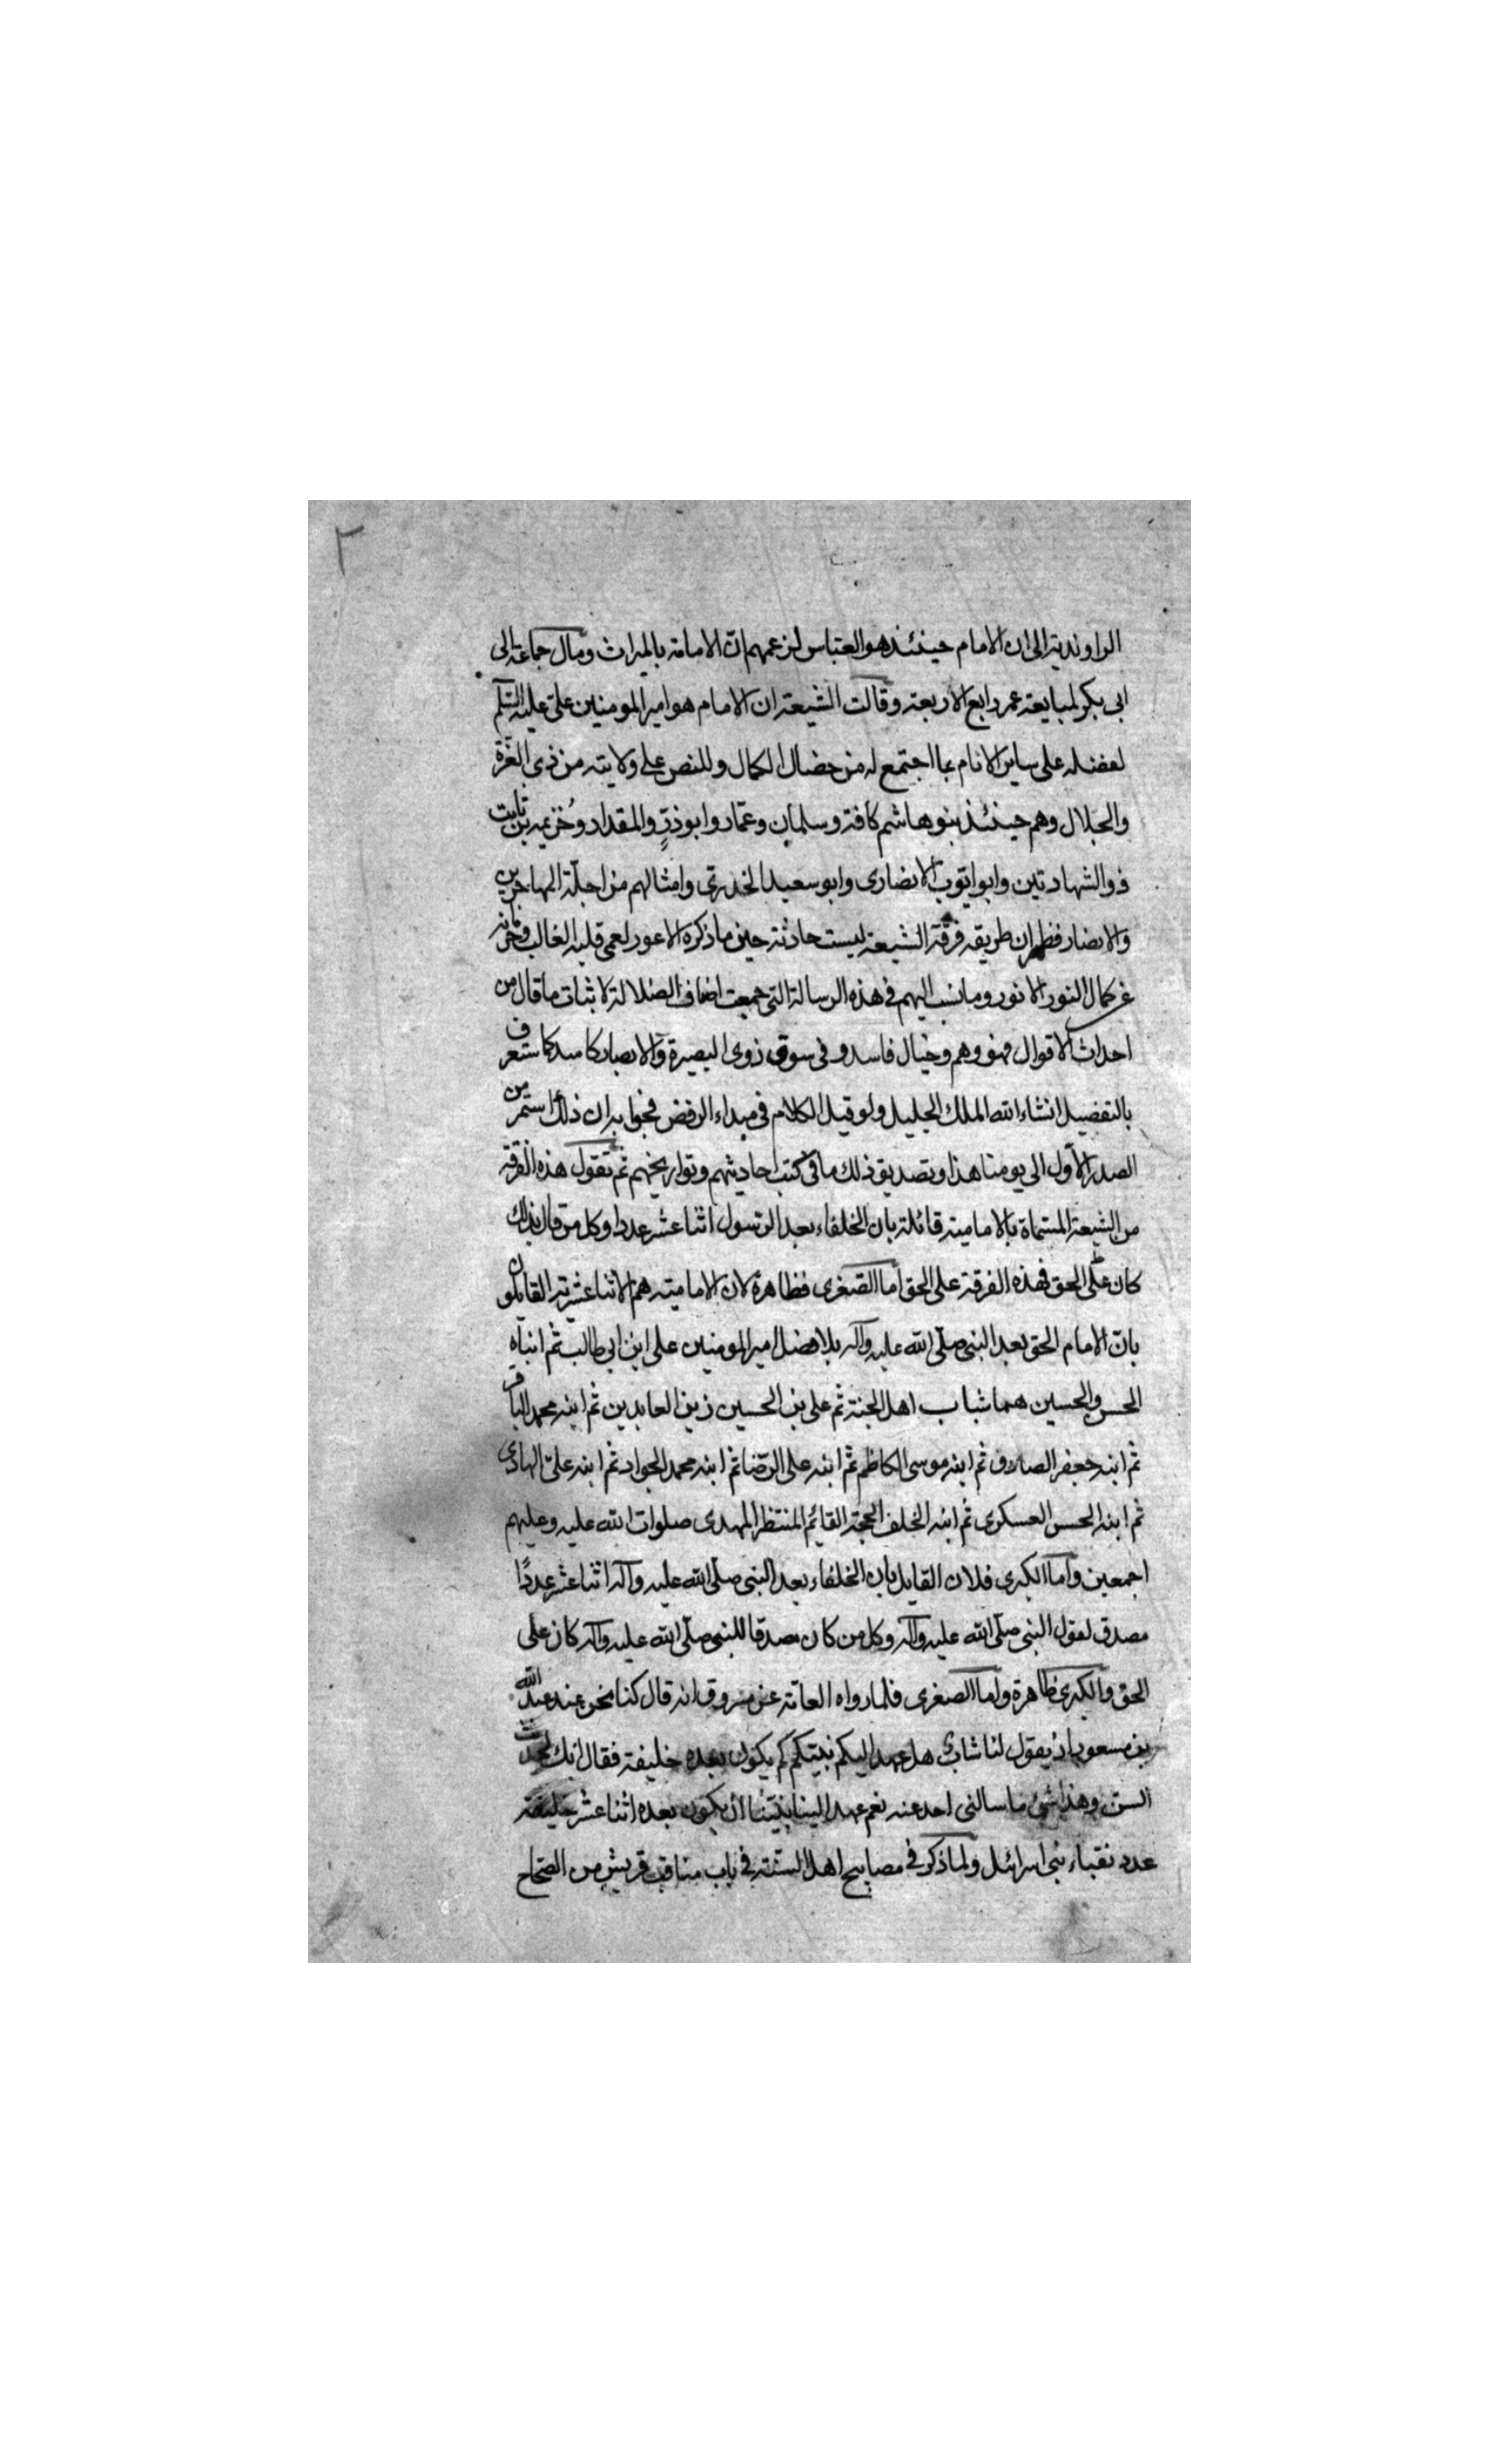 ٢
الراونديه الى ان الامام حينئذ هو العباس لزعمهم ان الامامة بالميراث ومال جماعة الى
ابى بكر لمبايعة عمر رابع الاربعة وقالت الشيعة ان الامام هو امير المومنين على عليه السلم
لفضله على ساير الانام بما اجتمع له من خصال الكمال وللنص على ولايته من ذى العزة
والجلال وهم حينئذ بنو هاشم كافة وسلمان وعمّار وابو ذرٍّ والمقداد وخُزيمه بن ثابت
ذو الشهادتين وابو ايّوب الانصارى وابو سعيد الخدرى وامثالهم من اجلّة المهاجرين
والانصار فظهر ان طريقه فرقة الشيعة ليست حادثة حين ما ذكره الاعور لعمى قلبه الغالب
عن كمال النور الانور وما نسب اليهم فى هذه الرسالة التى جمعت اضعاف الضلالة لاثبات ما قال من
احداث الاقوال فهو وهم وخيال فاسد وفى سوق ذوى البصيرة والابصار كاسد كما ستعرف
بالتفصيل انشاء الله الملك الجليل ولو قيل الكلام فى مبداء الرفض فجوابه ان ذلك استمر من
الصدر الاول الى يومنا هذا وتصديق ذلك ما فى كتب احاديثهم وتواريخهم ثم تقول هذه الفرقة
من الشيعة المسماة بالاماميه قائلة بان الخلفاء بعد الرسول اثنا عشر عددا وكل من قال بذلك
كان على الحق فهذه الفرقة على الحق اما الصغرى فظاهرة لان الاماميه هم الاثنا عشريه القايلون
بانّ الامام الحق بعد النبى صلّى الله عليه وآله بلا فصل امير المومنين على ابن ابى طالب ثم ابناه
الحسن والحسين هما شباب اهل الجنة ثم على بن الحسين زين العابدين ثم ابنه محمد الباقر
ثم ابنه جعفر الصادق ثم ابنه موسى الكاظم ثم ابنه على الرّضا ثم ابنه محمد الجواد ثم ابنه على الهادى
ثم ابنه الحسن العسكرى ثم ابنه الخلف الحجة القائم المنتظر المهدى صلوات الله عليه وعليهم
اجمعين واما الكبرى فلان القايل بان الخلفاء بعد النبى صلّى الله عليه وآله اثنا عشر عددًا
مصدق لقول النبى صلّى الله عليه وآله وكل من كان مصدقا للنبى صلّى الله عليه وآله كان على
الحق والكبرى ظاهرة واما الصغرى فلما رواه العامّة عن مسروق انه قال كنا نحن عند عبد الله
بن مسعود اذ يقول لنا شابّ هل عهد اليكم نبيّكم كم يكون بعده خليفة فقال انك لحدث
السن وهذا شئ ما سالنى احد عنه نعم عهد الينا نبيّنا ان يكون بعده اثنا عشر خليفة
عدد نقباء بنى اسرائيل ولما ذكر فى مصابيح اهل السنّة فى باب مناقب قريش من الصحاح